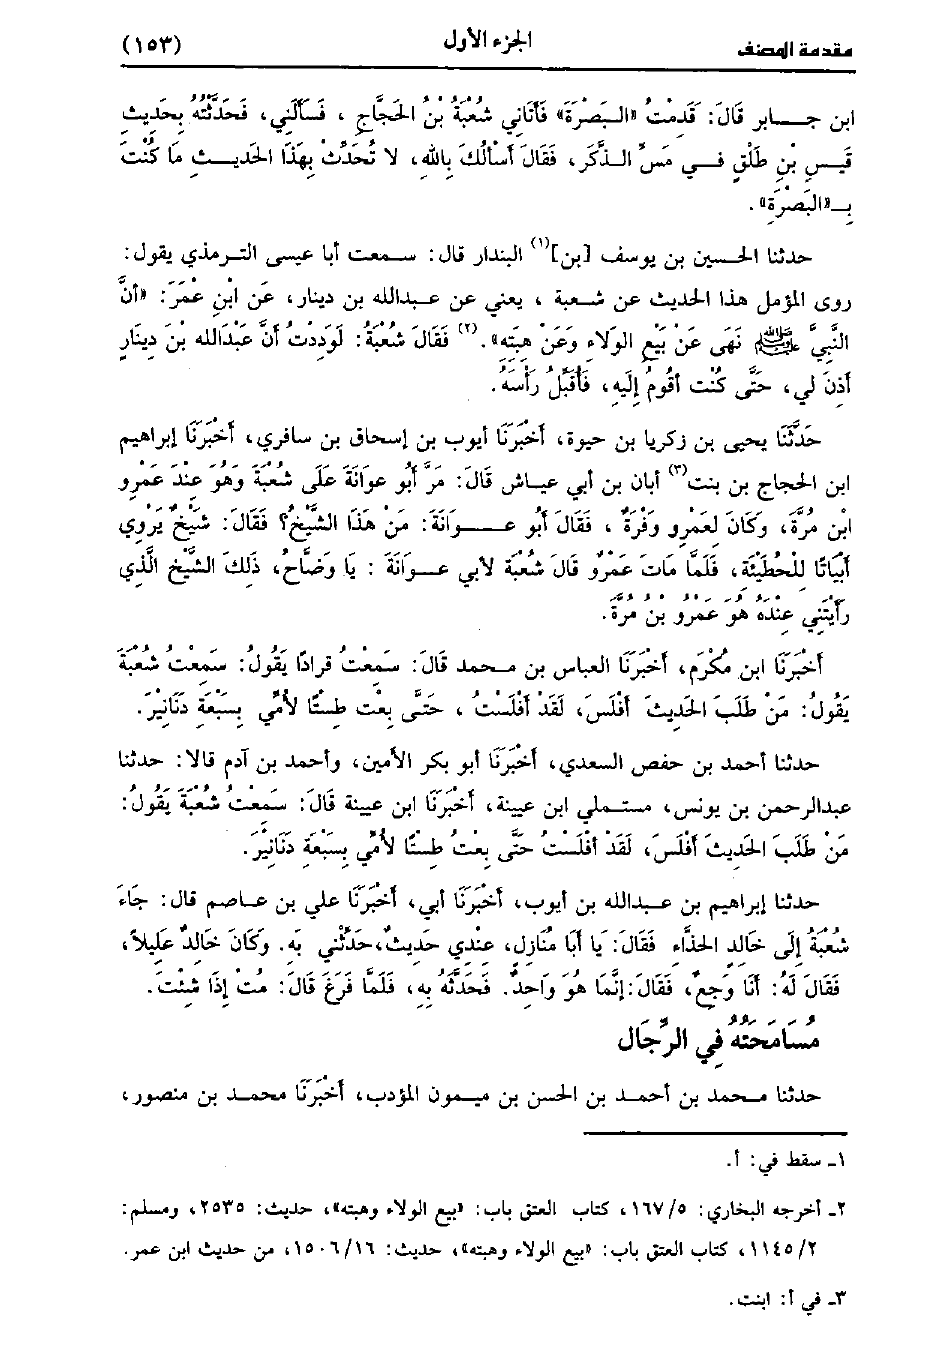 مقدمة المصنف الجزء الأول (١٥٣)
ابن جـابر قَالَ: قَدِمْتُ «البَصْرَةَ» فَأَتَانِي شُعْبَةُ بْنُ الحَجَّاجِ ، فَسَأَلَنِي، فَحَدَّثْتُهُ بِحَدِيثِ
قَيسِ بْنِ طَلْقٍ فِي مَسِّ الذَّكَرِ، فَقَالَ أَسْأَلُكَ بِالله، لا تُحَدِّثْ بِهَذَا الحَدِيثِ مَا كُنْتَ
بِـ«البَصْرَةِ».
حدثنا الحسين بن يوسف [بن](١) البندار قال: سمعت أبا عيسى الترمذي يقول:
روى المؤمل هذا الحديث عن شعبة ، يعني عن عبدالله بن دينار، عَن ابْنِ عُمَرَ: «أنَّ
النَّبِيَّ ﷺ نَهَى عَنْ بَيْعِ الوَلَاءِ وَعَنْ هِبَتِهِ».(٢) فَقَالَ شُعْبَةُ: لَوَدِدْتُ أَنَّ عَبْدَالله بْنَ دِينَارٍ
أَذِنَ لِي، حَتَّى كُنْتُ أَقُومُ إِلَيهِ، فَأُقَبِّلُ رَأْسَهُ.
حَدَّثَنَا يحيى بن زكريا بن حيوة، أَخْبَرَنَا أيوب بن إسحاق بن سافري، أَخْبَرَنَا إبراهيم
ابن الحجاج بن بنت(٣) أبان بن أبي عياش قَالَ: مَرَّ أَبُو عوَانَةَ عَلَى شُعْبَةَ وَهُوَ عِنْدَ عَمْرِو
ابْنِ مُرَّةَ، وَكَانَ لِعَمْرٍو وَفْرَةٌ ، فَقَالَ أَبُو عَـوَانَةَ: مَنْ هَذَا الشَّيْخُ؟ فَقَالَ: شَيْخٌ يَرْوِي
أَبْيَاتًا لِلْحُطَيْئَةِ، فَلَمَّا مَاتَ عَمْرٌو قَالَ شُعْبَةُ لأَبِي عَـوَانَةَ : يا وَضَّاحُ، ذَلِكَ الشَّيْخُ الَّذِي
رَأَيْتَنِي عِنْدَهُ هُوَ عَمْرُو بْنُ مُرَّةَ.
أَخْبَرَنَا ابن مُكْرَمٍ، أَخْبَرَنَا العباس بن محمد قَالَ: سَمَعْتُ قرادًا يَقُولُ: سَمِعْتُ شُعْبَةَ
يَقُولُ: مَنْ طَلَبَ الحَدِيثَ أَفْلَسَ، لَقَدْ أَفْلَسْتُ ، حَتَّى بِعْتُ طِستًا لأُمِّي بِسَبْعَةِ دَنَانِيْرَ.
حدثنا أحمد بن حفص السعدي، أَخْبَرَنَا أبو بكر الأمين، وأحمد بن آدم قالا: حدثنا
عبدالرحمن بن يونس، مستملي ابن عيينة، أَخْبَرَنَا ابن عيينة قَالَ: سَمِعْتُ شُعْبَةَ يَقُولُ:
مَنْ طَلَبَ الحَدِيثَ أَفْلَسَ، لَقَدْ أَفْلَسْتُ حَتَّى بِعْتُ طِسْتًا لأُمِّي بِسَبْعَةِ دَنَانِيْرَ.
حدثنا إبراهيم بن عبدالله بن أيوب، أَخْبَرَنَا أبي، أَخْبَرَنَا علي بن عاصم قال: جَاءَ
شُعْبَةُ إِلَى خَالِدٍ الحَذَّاءِ فَقَالَ: يا أَبَا مُنَازِلٍ، عِنْدِي حَدِيثٌ،حَدِّثْنِي بِهِ. وَكَانَ خَالِدٌ عَلِيلاً،
فَقَالَ لَهُ: أَنَا وَجِعٌ، فَقَالَ:إِنَّمَا هُوَ وَاحِدٌ. فَحَدَّثَهُ بِهِ، فَلَمَّا فَرَغَ قَالَ: مُتْ إِذَا شِئْتَ.
مُسَامَحَتُهُ فِي الرِّجَال
حدثنا محمد بن أحمد بن الحسن بن ميمون المؤدب، أَخْبَرَنَا محمد بن منصور،
١ـ سقط في: أ.
٢ـ أخرجه البخاري: ٥/ ١٦٧، كتاب العتق باب: «بيع الولاء وهبته»، حديث: ٢٥٣٥، ومسلم:
٢/ ١١٤٥، كتاب العتق باب: «بيع الولاء وهبته»، حديث: ١٦/ ١٥٠٦، من حديث ابن عمر.
٣ـ في أ: ابنت.